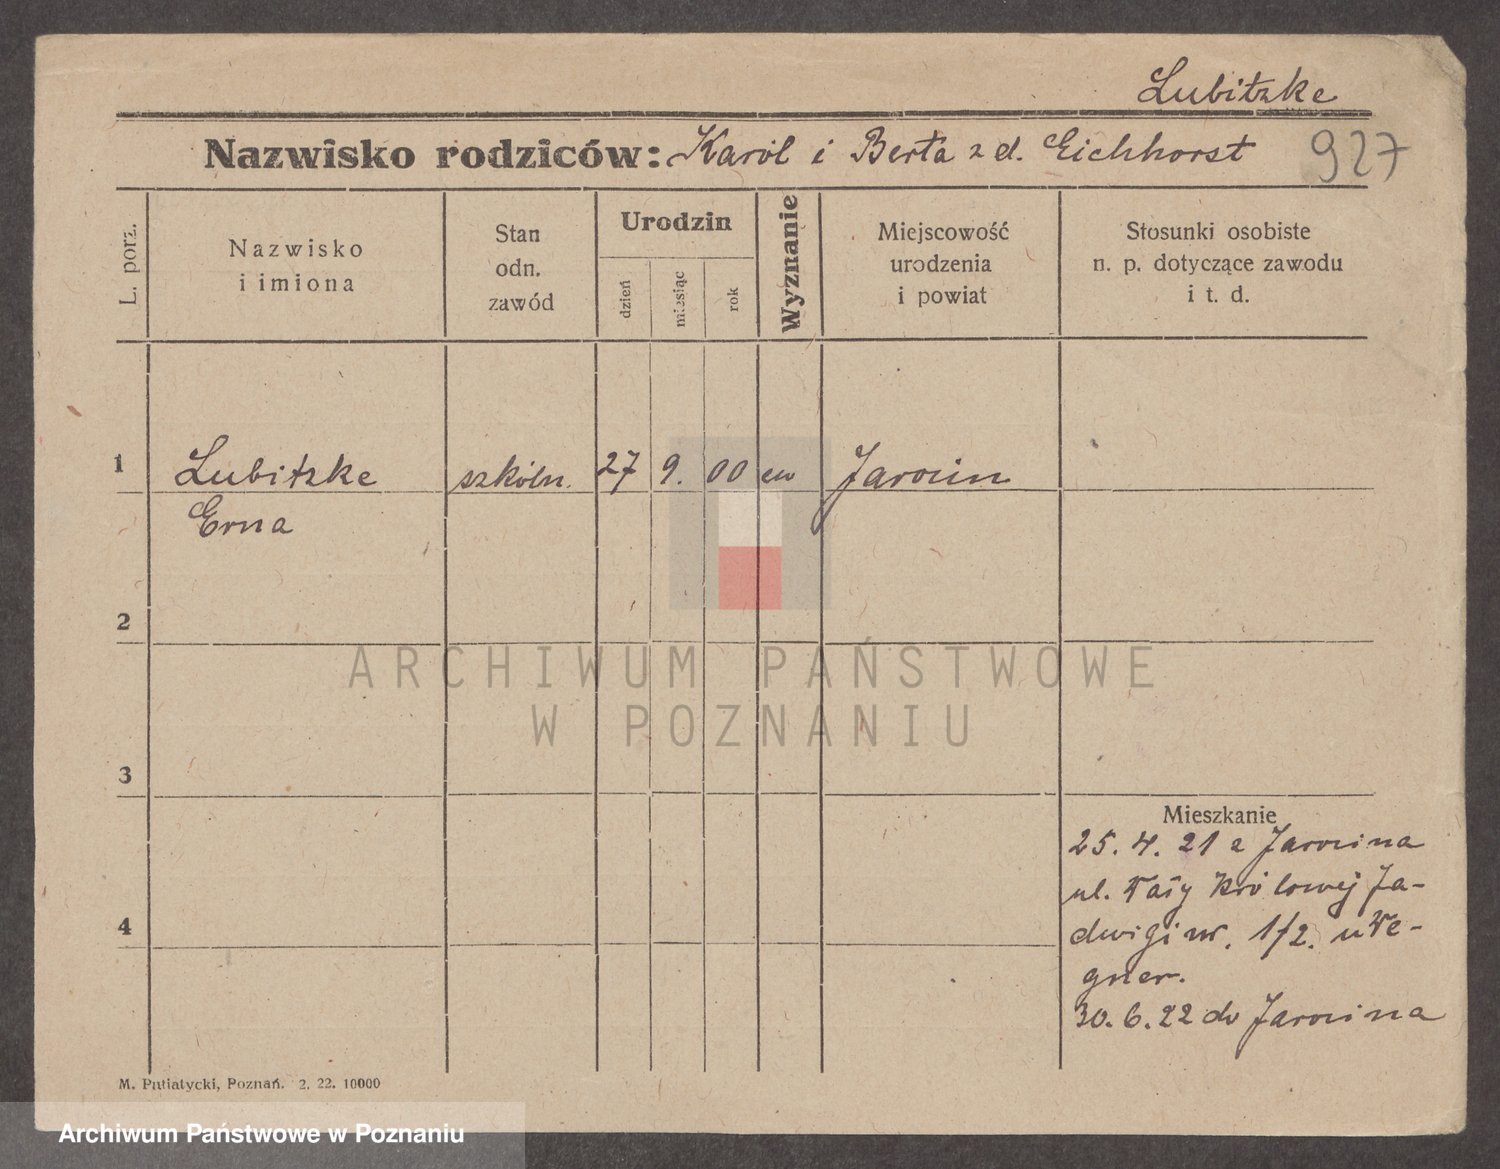 Lubitzke
Nazwisko rodziców: Karól i Berta z d. Eichhorst 927
L. porz.
Nazwisko
i imiona
Stan
odn.
zawód
Urodzin
dzień
miesiąc
rok
Wyznanie
Miejscowość
urodzenia
i powiat
Stosunki osobiste
n. p. dotyczące zawodu
i t. d.
1 Lubitzke szkóln. 27 9. 00 ew Jarocin
Erna
2
3
4
Mieszkanie
25. 4. 21 z Jarocina
ul. Wały Królowej Ja-
dwigi nr. 1/2. u We-
gner.
30. 6. 22 do Jarocina
M. Putiatycki, Poznań. 2. 22. 10000
ARCHIWUM PAŃSTWOWE
W POZNANIU
Archiwum Państwowe w Poznaniu